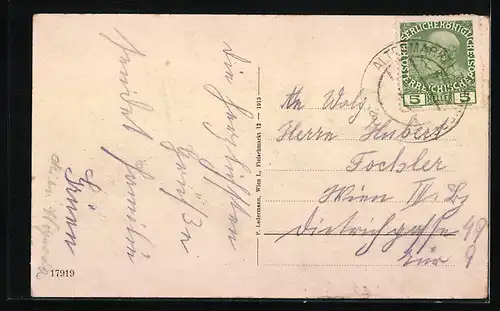 Die herzlichsten
Grüße
sendet Familie
Grünn
17919
P. Ledermann, Wien I., Fleischmarkt 12 — 1913
KAISERLICHE KÖNIGLICHE ÖSTERREICHISCHE
5 5
An Wolg
Herrn Hubert
Fochler
Wien III. Bz
Dietrichgasse 49
Tür 9